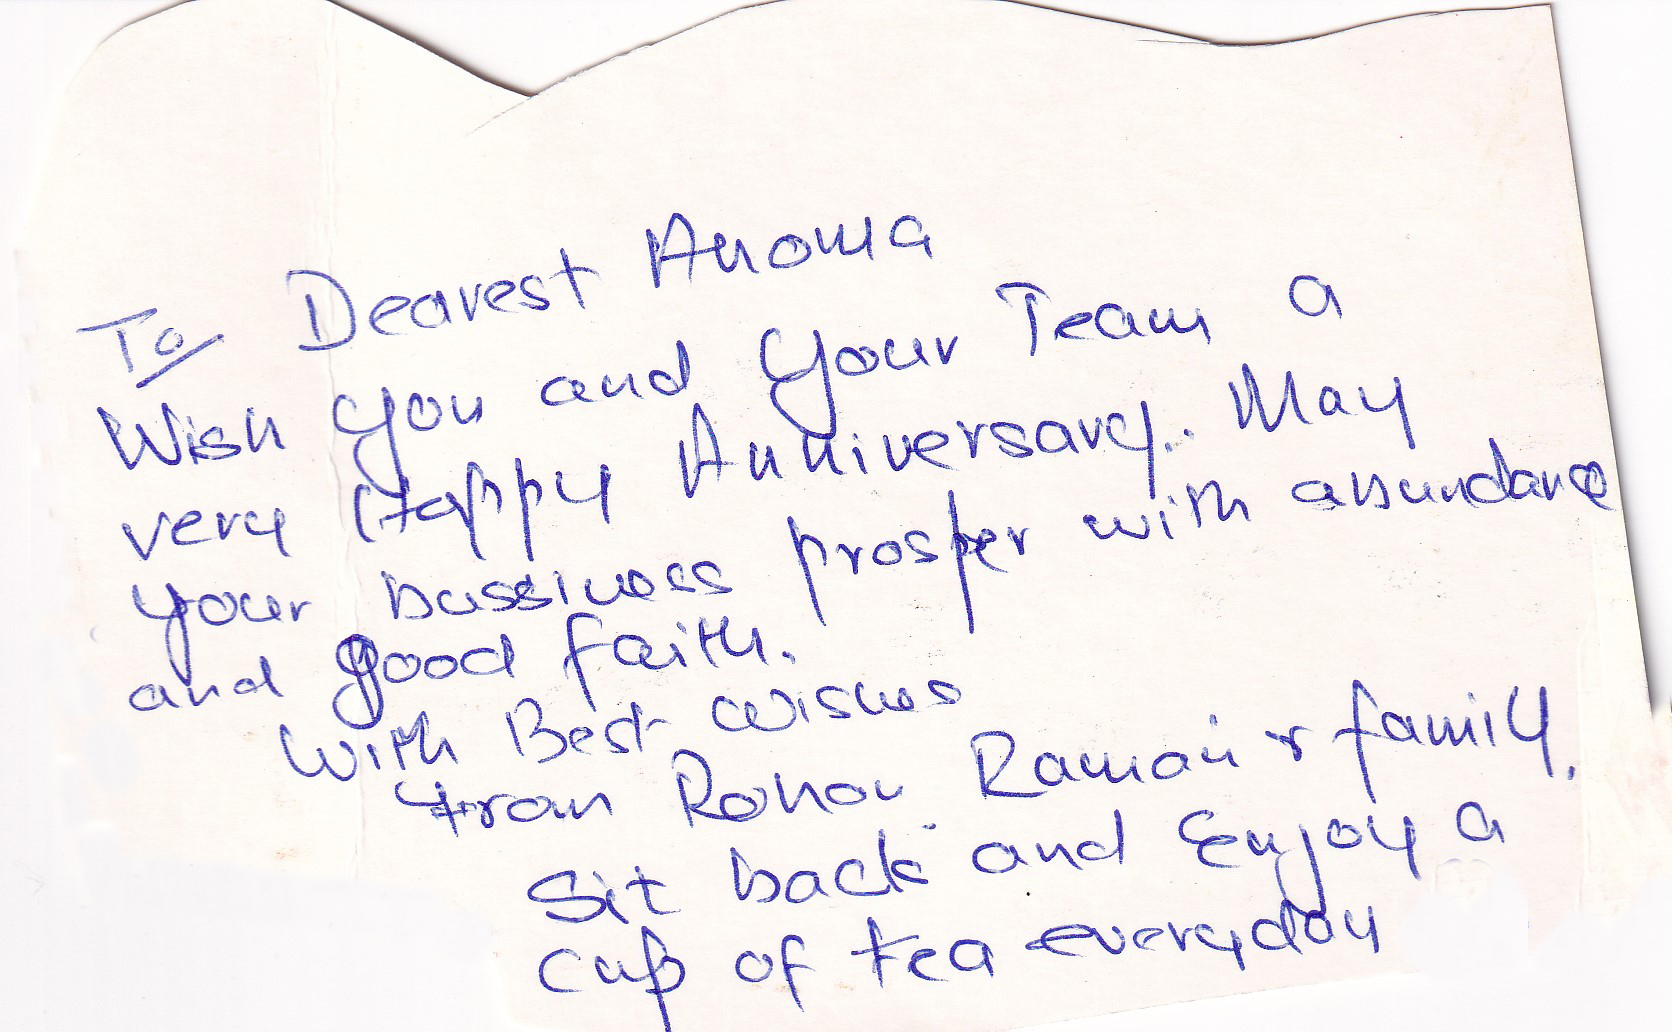 To Dearest Anoma
Wish you and your Team a
very Happy Anniversary.. May
your bussiness prosper with abundance
and good faith.
With Best wishes
from Rohan Ramani & family.
Sit back and Enjoy a
cup of tea everyday